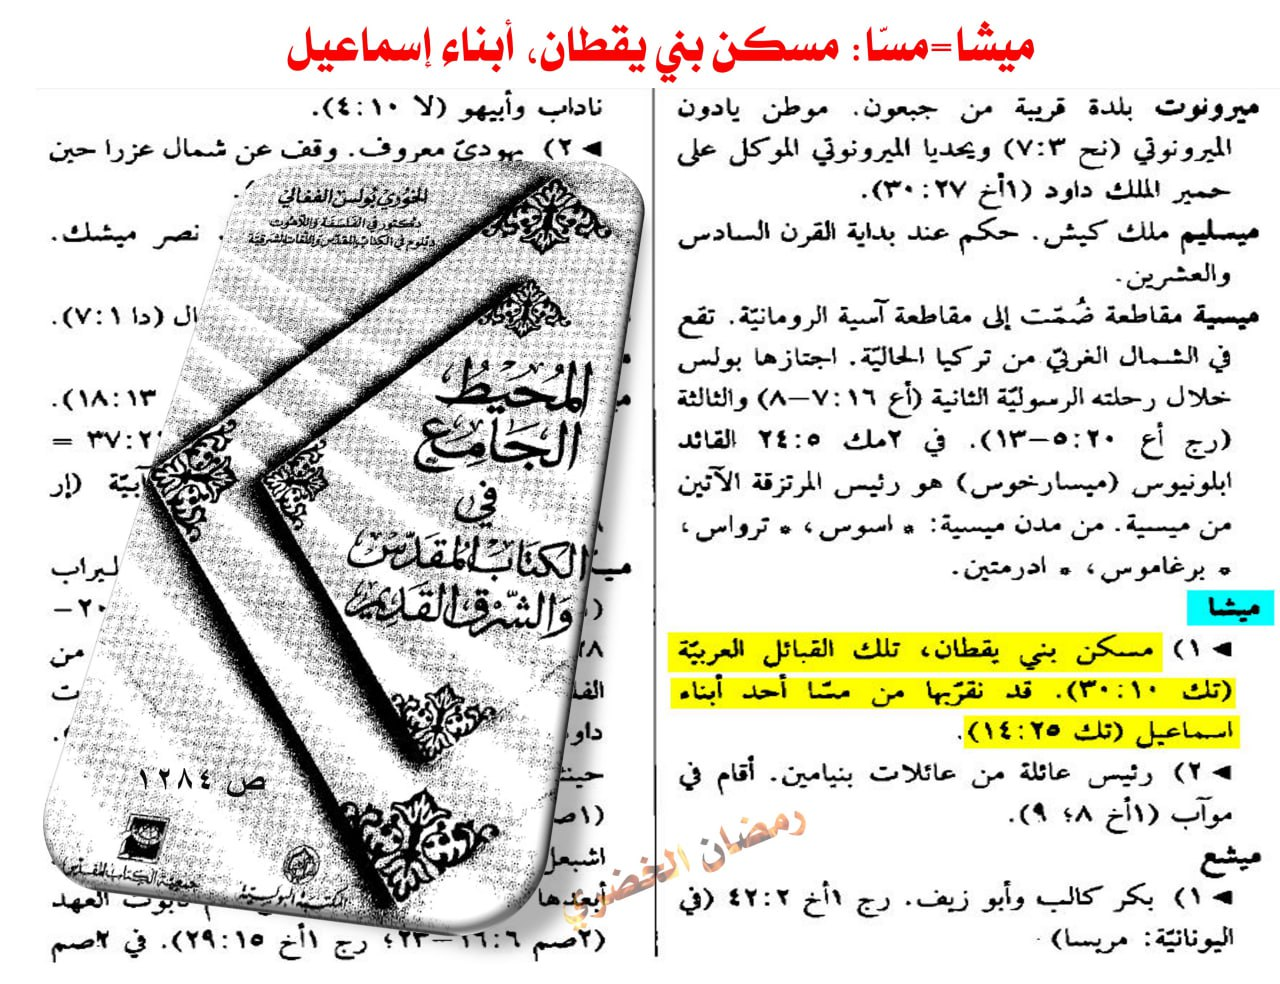 ميشا=مسّا: مسكن بني يقطان، أبناء إسماعيل
ميرونوت بلدة قريبة من جبعون. موطن يادون
الميرونوتي (نح ٣:٧) ويحديا الميرونوتي الموكل على
حمير الملك داود (١أخ ٢٧ :٣٠).
ميسليم ملك كيش. حكم عند بداية القرن السادس
والعشرين.
ميسية مقاطعة ضُمّت إلى مقاطعة آسية الرومانيّة. تقع
في الشمال الغربيّ من تركيا الحاليّة. اجتازها بولس
خلال رحلته الرسوليّة الثانية (أع ١٦:٧-٨) والثالثة
(رج أع ٢٠:٥-١٣). في ٢مك ٥:٢٤ القائد
ابلونيوس (ميسارخوس) هو رئيس المرتزقة الآتين
من ميسية. من مدن ميسية: * اسوس، * ترواس،
* برغاموس، * ادرمتين.
ميشا
◄ ١) مسكن بني يقطان، تلك القبائل العربيّة
(تك ١٠:٣٠). قد نقرّبها من مسّا أحد أبناء
اسماعيل (تك ٢٥:١٤).
◄ ٢) رئيس عائلة من عائلات بنيامين. أقام في
موآب (١أخ ٨؛ ٩).
ميشع
◄ ١) بكر كالب وأبو زيف. رج ١أخ ٢:٤٢ (في
اليونانيّة: مريسا)
ناداب وأبيهو (لا ١٠:٤).
◄ ٢) يهوديّ معروف. وقف عن شمال عزرا حين
نصر ميشك.
(دا ١:٧).
١٣:١٨).
٣٧:٢ =
(إر
من
٢٠-
حينئ
(١صم
اشبعل
أبعدها
تابوت العهد
(٢صم ٦:١٦-٢٣؛ رج ١أخ ١٥:٢٩). في ٢صم
الخوري بولس الفغالي
دكتور في الفلسفة واللاهوت
دبلوم في الكتاب المقدس واللغات الشرقيّة
المُحيطُ
الجَامِع
في
الكتاب المقدّس
والشّرق القديم
ص ١٢٨٤
جمعيّة الكتاب المقدّس
المكتبة البولسيّة
رمضان الخضري